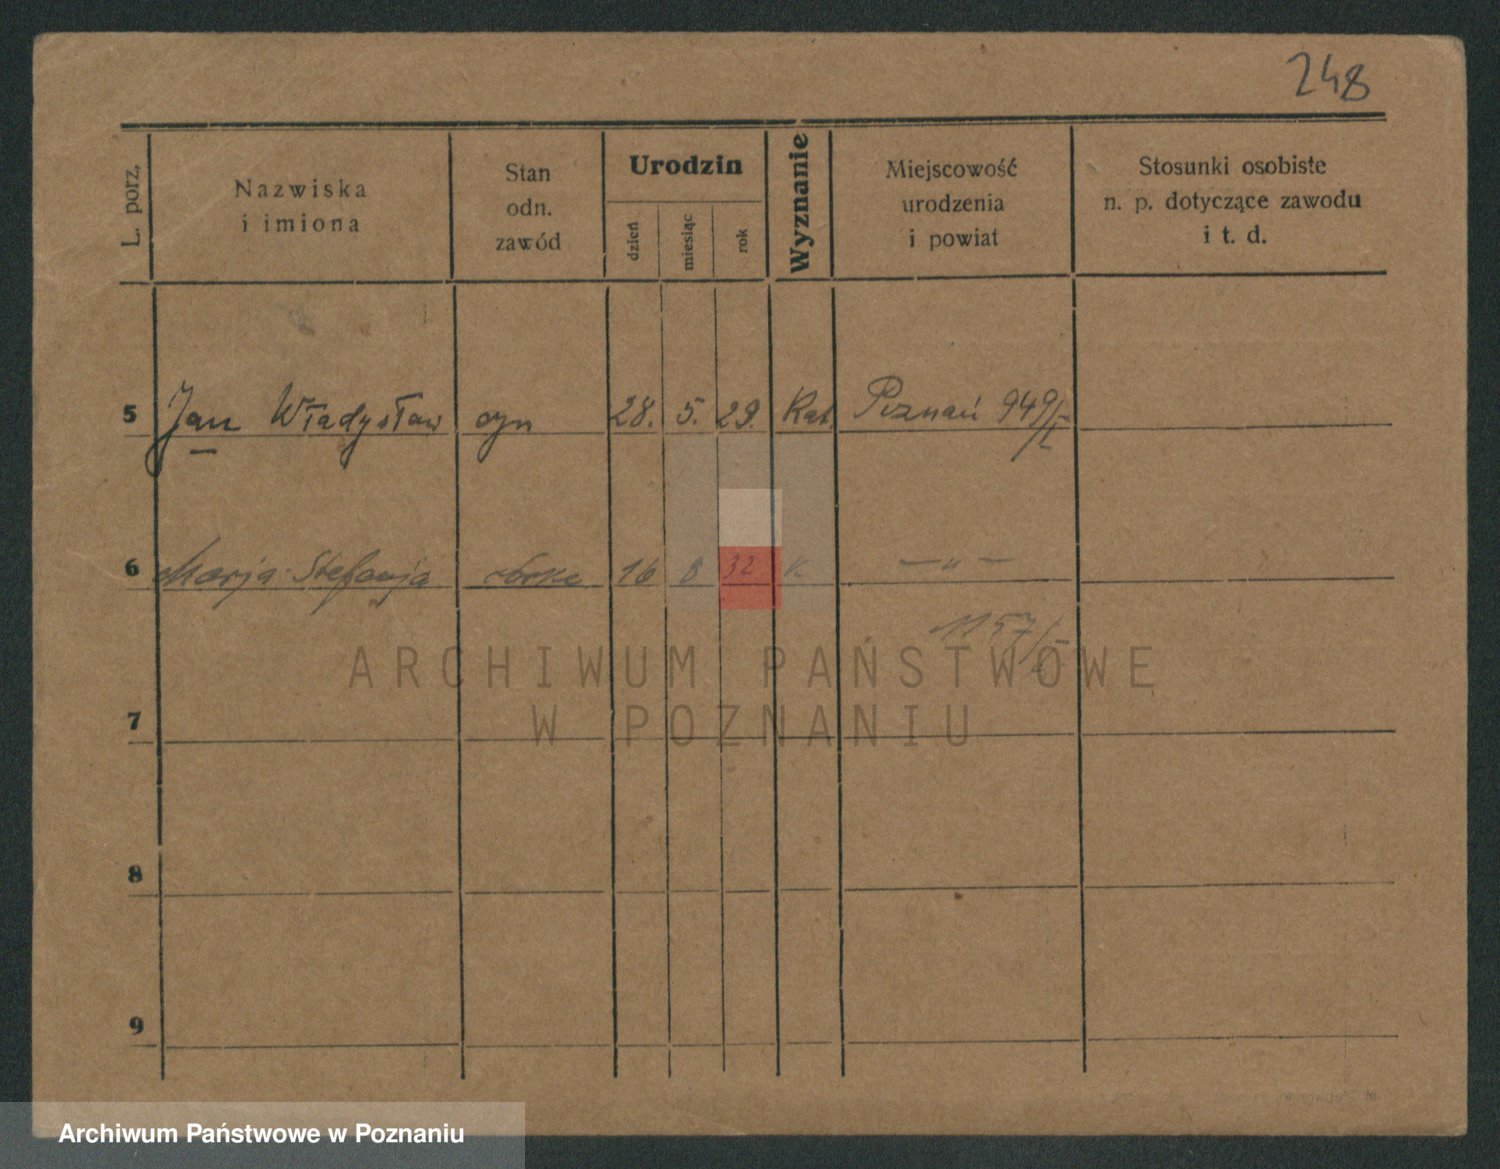 248
L. porz.
Nazwiska
i imiona
Stan
odn.
zawód
Urodzin
dzień
miesiąc
rok
Wyznanie
Miejscowość
urodzenia
i powiat
Stosunki osobiste
n. p. dotyczące zawodu
i t. d.
5 Jan Władysław syn 28. 5. 29. Kat. Poznań 949/
6 Marja Stefanja córka 16 8 32 K — " —
1157/
ARCHIWUM PAŃSTWOWE
W POZNANIU
7
8
9
Archiwum Państwowe w Poznaniu